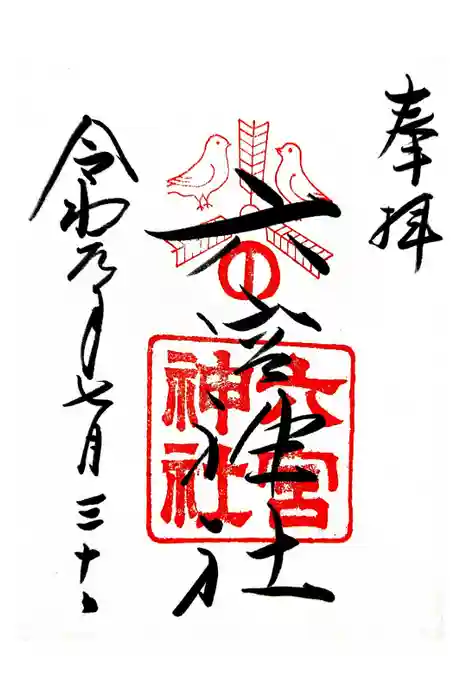 奉拝
六宮神社
六宮神社
令和元年七月三十日